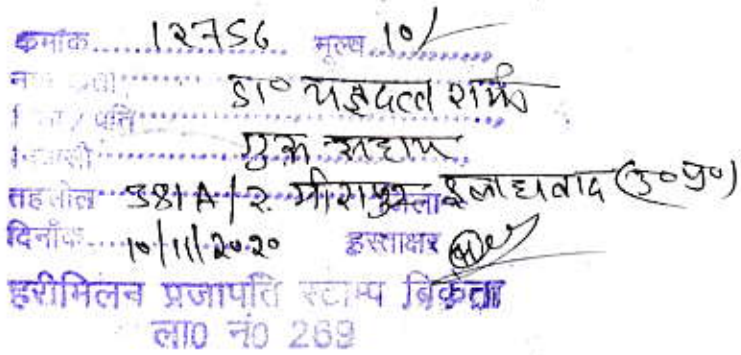 क्रमांक.....12756 मूल्य 10/
डा० यज्ञदत्त शर्मा
पिता / पति
निवासी
तहसील 381A/2 मीरापुर जिला इलाहाबाद (उ०प्र०)
दिनाँक.....10/11/2020 हस्ताक्षर
हरीमिलन प्रजापति स्टाम्प विक्रेता
ला0 नं0 269